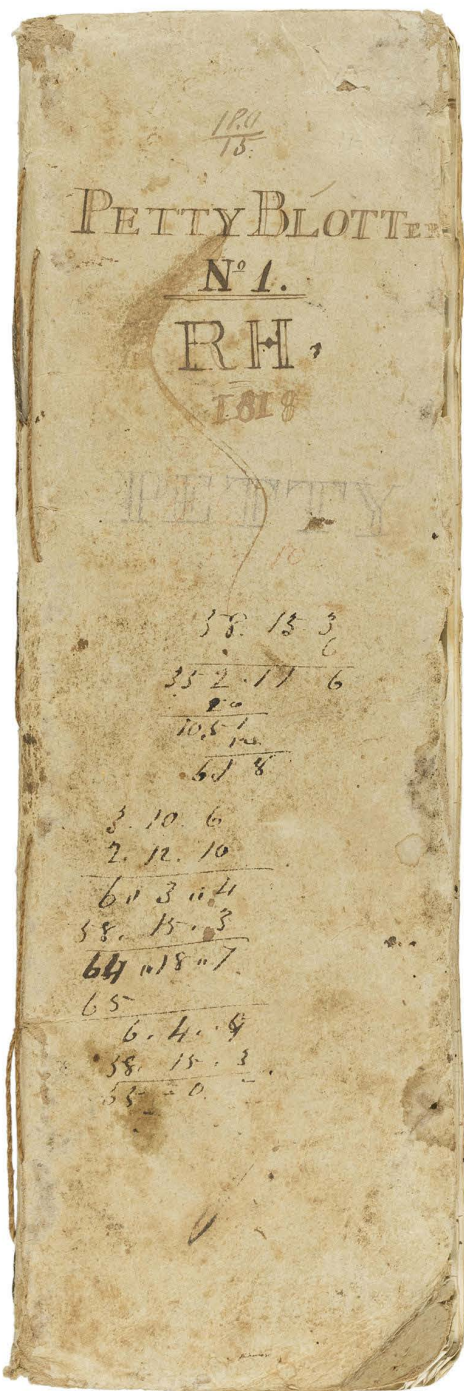 18.0
15
PETTY BLOTTER
No 1.
RH.
1818
PETTY
10
58. 15 3
6
352. 11 6
20
10,51
12
618
3. 10. 6
2. 12. 10
6 " 3 " 4
58. 15. 3
64 " 18 " 7
65
6. 4. 9
58. 15. 3
65 - 0 -